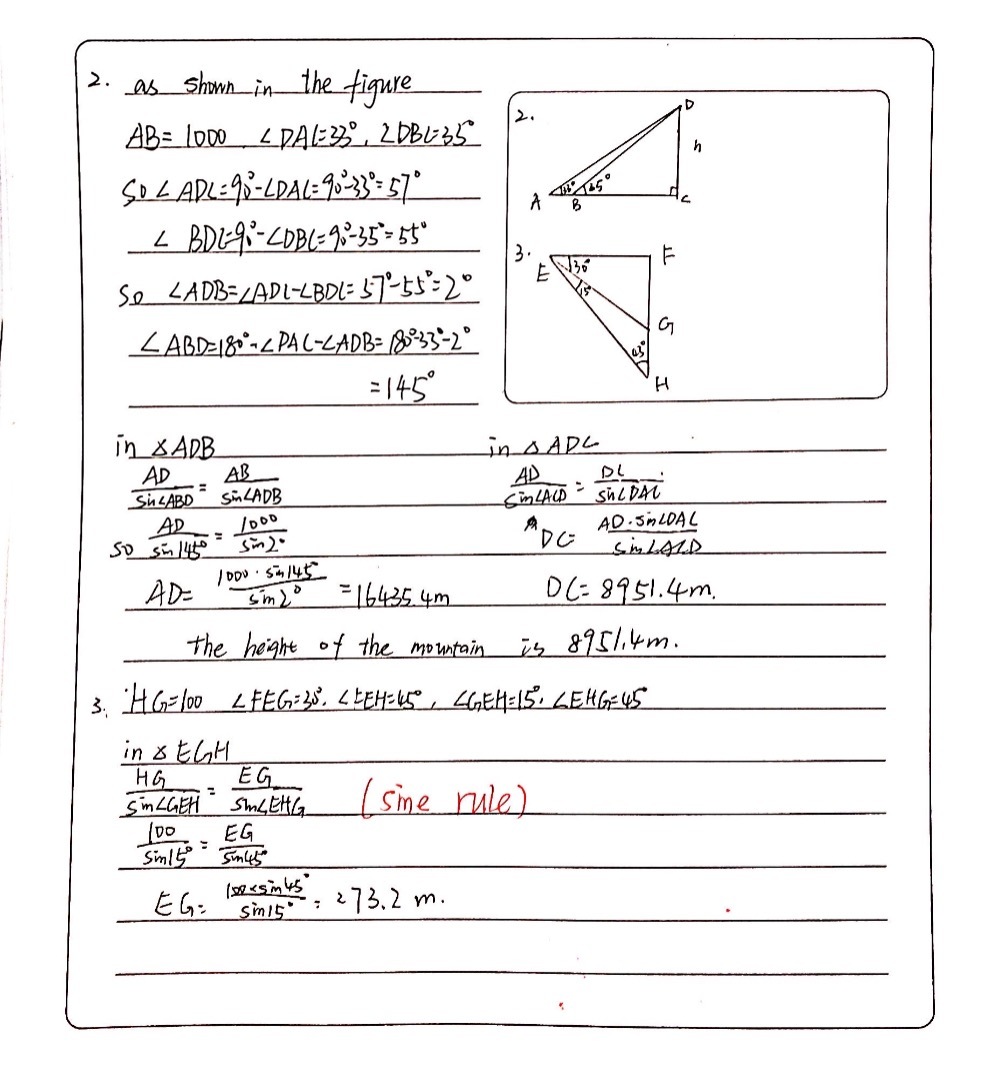 2. as shown in the figure
AB= 1000 ∠DAC=33°, ∠DBC=35°
So ∠ADC=90°-∠DAC=90°-33°=57°
∠BDC=90°-∠DBC=90°-35°=55°
So ∠ADB=∠ADC-∠BDC=57°-55°=2°
∠ABD=180°-∠DAC-∠ADB=180°-33°-2°
=145°
2.
D
h
A 33° B 35° C
3.
E 30° F
15°
G
45°
H
in △ADB
AD/sin∠ABD = AB/sin∠ADB
so AD/sin145° = 1000/sin2°
AD= 1000·sin145/sin2° =16435.4m
in △ADC
AD/sin∠ACD = DC/sin∠DAC
DC= AD·sin∠DAC/sin∠ACD
DC= 8951.4m.
the height of the mountain is 8951.4m.
3. HG=100 ∠FEG=30°. ∠FEH=45°, ∠GEH=15°. ∠EHG=45°
in △EGH
HG/sin∠GEH = EG/sin∠EHG (sine rule)
100/sin15° = EG/sin45°
EG= 100×sin45°/sin15° = 273.2 m.